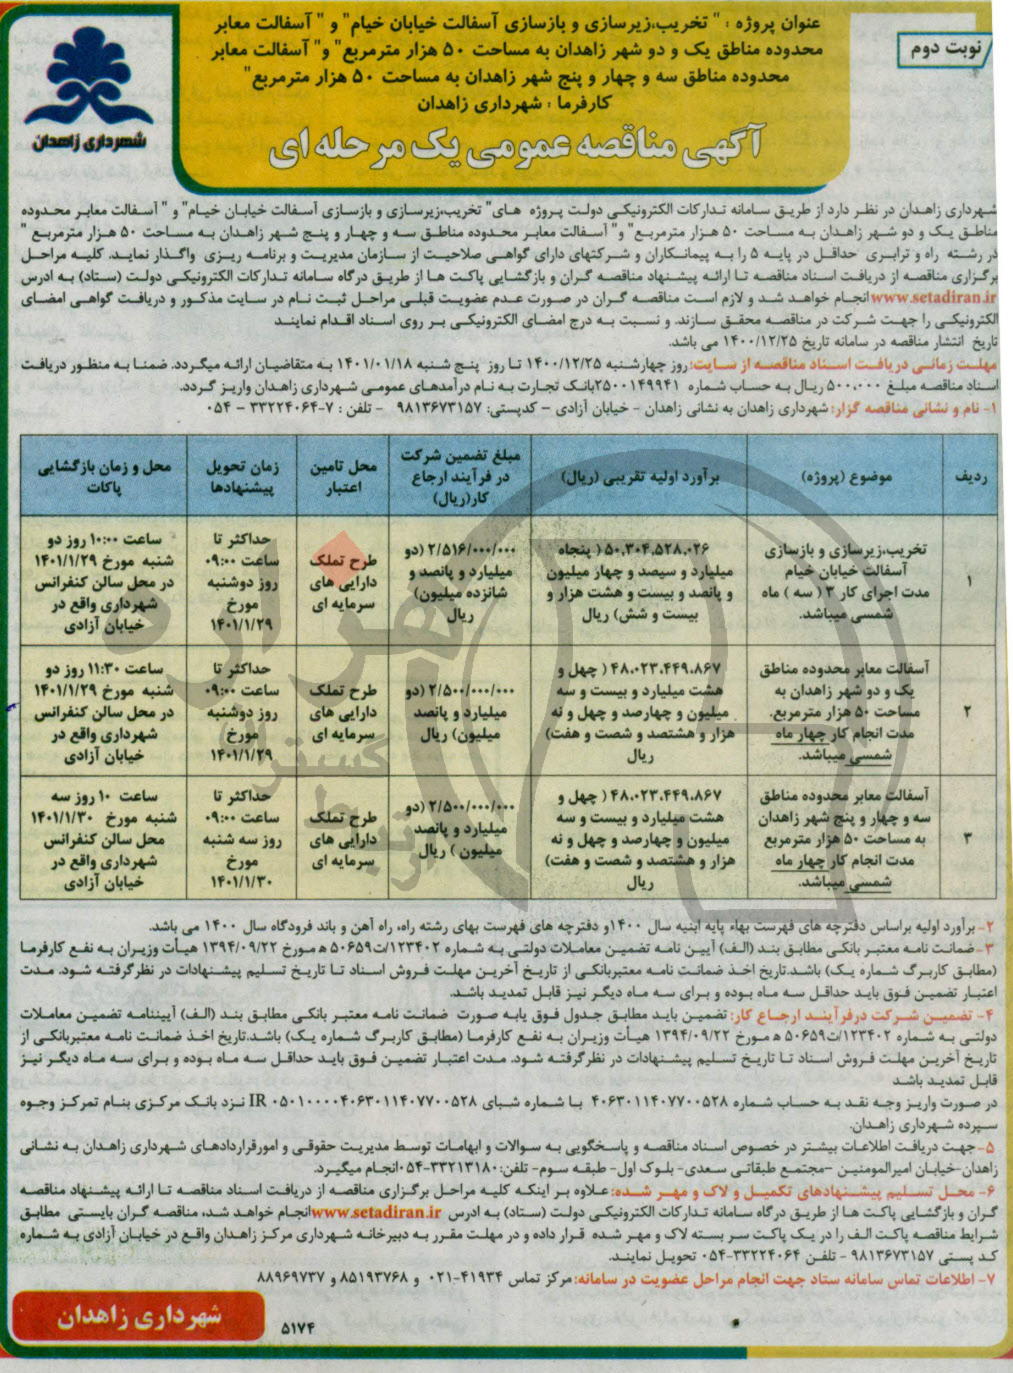 نوبت دوم
عنوان پروژه : " تخریب،زیرسازی و بازسازی آسفالت خیابان خیام" و " آسفالت معابر
محدوده مناطق یک و دو شهر زاهدان به مساحت ۵۰ هزار مترمربع" و" آسفالت معابر
محدوده مناطق سه و چهار و پنج شهر زاهدان به مساحت ۵۰ هزار مترمربع"
کارفرما : شهرداری زاهدان
آگهی مناقصه عمومی یک مرحله ای
شهرداری زاهدان
شهرداری زاهدان در نظر دارد از طریق سامانه تدارکات الکترونیکی دولت پروژه های" تخریب،زیرسازی و بازسازی آسفالت خیابان خیام" و " آسفالت معابر محدوده
مناطق یک و دو شهر زاهدان به مساحت ۵۰ هزار مترمربع" و" آسفالت معابر محدوده مناطق سه و چهار و پنج شهر زاهدان به مساحت ۵۰ هزار مترمربع "
در رشته راه و ترابری حداقل در پایه ۵ را به پیمانکاران و شرکتهای دارای گواهی صلاحیت از سازمان مدیریت و برنامه ریزی واگذار نماید. کلیه مراحل
برگزاری مناقصه از دریافت اسناد مناقصه تا ارائه پیشنهاد مناقصه گران و بازگشایی پاکت ها از طریق درگاه سامانه تدارکات الکترونیکی دولت (ستاد) به ادرس
www.setadiran.ir انجام خواهد شد و لازم است مناقصه گران در صورت عدم عضویت قبلی مراحل ثبت نام در سایت مذکور و دریافت گواهی امضای
الکترونیکی را جهت شرکت در مناقصه محقق سازند. و نسبت به درج امضای الکترونیکی بر روی اسناد اقدام نمایند
تاریخ انتشار مناقصه در سامانه تاریخ ۱۴۰۰/۱۲/۲۵ می باشد.
مهلت زمانی دریافت اسناد مناقصه از سایت:روز چهارشنبه ۱۴۰۰/۱۲/۲۵ تا روز پنج شنبه ۱۴۰۱/۰۱/۱۸ به متقاضیان ارائه میگردد. ضمنا به منظور دریافت
اسناد مناقصه مبلغ ۵۰۰،۰۰۰ ریال به حساب شماره ۲۵۰۰۱۴۹۹۴۱بانک تجارت به نام درآمدهای عمومی شهرداری زاهدان واریز گردد.
۱- نام و نشانی مناقصه گزار: شهرداری زاهدان به نشانی زاهدان - خیابان آزادی – کدپستی: ۹۸۱۳۶۷۳۱۵۷ - تلفن : ۷-۳۳۲۲۴۰۶۴ – ۰۵۴
ردیف | موضوع (پروژه) | برآورد اولیه تقریبی (ریال) | مبلغ تضمین شرکت در فرآیند ارجاع کار(ریال) | محل تامین اعتبار | زمان تحویل پیشنهادها | محل و زمان بازگشایی پاکات
۱ | تخریب،زیرسازی و بازسازی آسفالت خیابان خیام مدت اجرای کار ۳ ( سه ) ماه شمسی میباشد. | ۵۰،۳۰۴،۵۲۸،۰۲۶ ( پنجاه میلیارد و سیصد و چهار میلیون و پانصد و بیست و هشت هزار و بیست و شش) ریال | ۲/۵۱۶/۰۰۰/۰۰۰ (دو میلیارد و پانصد و شانزده میلیون) ریال | طرح تملک دارایی های سرمایه ای | حداکثر تا ساعت ۰۹:۰۰ روز دوشنبه مورخ ۱۴۰۱/۱/۲۹ | ساعت ۱۰:۰۰ روز دو شنبه مورخ ۱۴۰۱/۱/۲۹ در محل سالن کنفرانس شهرداری واقع در خیابان آزادی
۲ | آسفالت معابر محدوده مناطق یک و دو شهر زاهدان به مساحت ۵۰ هزار مترمربع. مدت انجام کار چهار ماه شمسی میباشد. | ۴۸،۰۲۳،۴۴۹،۸۶۷ ( چهل و هشت میلیارد و بیست و سه میلیون و چهارصد و چهل و نه هزار و هشتصد و شصت و هفت) ریال | ۲/۵۰۰/۰۰۰/۰۰۰ (دو میلیارد و پانصد میلیون) ریال | طرح تملک دارایی های سرمایه ای | حداکثر تا ساعت ۰۹:۰۰ روز دوشنبه مورخ ۱۴۰۱/۱/۲۹ | ساعت ۱۱:۳۰ روز دو شنبه مورخ ۱۴۰۱/۱/۲۹ در محل سالن کنفرانس شهرداری واقع در خیابان آزادی
۳ | آسفالت معابر محدوده مناطق سه و چهار و پنج شهر زاهدان به مساحت ۵۰ هزار مترمربع مدت انجام کار چهار ماه شمسی میباشد. | ۴۸،۰۲۳،۴۴۹،۸۶۷ ( چهل و هشت میلیارد و بیست و سه میلیون و چهارصد و چهل و نه هزار و هشتصد و شصت و هفت) ریال | ۲/۵۰۰/۰۰۰/۰۰۰ (دو میلیارد و پانصد میلیون ) ریال | طرح تملک دارایی های سرمایه ای | حداکثر تا ساعت ۰۹:۰۰ روز سه شنبه مورخ ۱۴۰۱/۱/۳۰ | ساعت ۱۰ روز سه شنبه مورخ ۱۴۰۱/۱/۳۰ محل سالن کنفرانس شهرداری واقع در خیابان آزادی
۲- برآورد اولیه براساس دفترچه های فهرست بهاء پایه ابنیه سال ۱۴۰۰و دفترچه های فهرست بهای رشته راه، راه آهن و باند فرودگاه سال ۱۴۰۰ می باشد.
۳- ضمانت نامه معتبر بانکی مطابق بند (الف) آیین نامه تضمین معاملات دولتی به شماره ۱۲۳۴۰۲/ت۵۰۶۵۹ ه مورخ ۱۳۹۴/۰۹/۲۲ هیأت وزیران به نفع کارفرما
(مطابق کاربرگ شماره یک) باشد.تاریخ اخذ ضمانت نامه معتبربانکی از تاریخ آخرین مهلت فروش اسناد تا تاریخ تسلیم پیشنهادات در نظرگرفته شود. مدت
اعتبار تضمین فوق باید حداقل سه ماه بوده و برای سه ماه دیگر نیز قابل تمدید باشد.
۴- تضمین شرکت درفرآیند ارجاع کار: تضمین باید مطابق جدول فوق یابه صورت ضمانت نامه معتبر بانکی مطابق بند (الف) آییننامه تضمین معاملات
دولتی به شماره ۱۲۳۴۰۲/ت۵۰۶۵۹ ه مورخ ۱۳۹۴/۰۹/۲۲ هیأت وزیران به نفع کارفرما (مطابق کاربرگ شماره یک) باشد.تاریخ اخذ ضمانت نامه معتبربانکی از
تاریخ آخرین مهلت فروش اسناد تا تاریخ تسلیم پیشنهادات در نظرگرفته شود. مدت اعتبار تضمین فوق باید حداقل سه ماه بوده و برای سه ماه دیگر نیز
قابل تمدید باشد
در صورت واریز وجه نقد به حساب شماره ۴۰۶۳۰۱۱۴۰۷۷۰۰۵۲۸ با شماره شبای IR ۰۵۰۱۰۰۰۰۴۰۶۳۰۱۱۴۰۷۷۰۰۵۲۸ نزد بانک مرکزی بنام تمرکز وجوه
سپرده شهرداری زاهدان.
۵- جهت دریافت اطلاعات بیشتر در خصوص اسناد مناقصه و پاسخگویی به سوالات و ابهامات توسط مدیریت حقوقی و امورقراردادهای شهرداری زاهدان به نشانی
زاهدان-خیابان امیرالمومنین –مجتمع طبقاتی سعدی- بلوک اول- طبقه سوم- تلفن:۳۳۲۱۳۱۸۰-۰۵۴انجام میگیرد.
۶- محل تسلیم پیشنهادهای تکمیل و لاک و مهر شده: علاوه بر اینکه کلیه مراحل برگزاری مناقصه از دریافت اسناد مناقصه تا ارائه پیشنهاد مناقصه
گران و بازگشایی پاکت ها از طریق درگاه سامانه تدارکات الکترونیکی دولت (ستاد) به ادرس www.setadiran.irانجام خواهد شد، مناقصه گران بایستی مطابق
شرایط مناقصه پاکت الف را در یک پاکت سر بسته لاک و مهر شده قرار داده و در مهلت مقرر به دبیرخانه شهرداری مرکز زاهدان واقع در خیابان آزادی به شماره
کد پستی ۹۸۱۳۶۷۳۱۵۷ - تلفن ۳۳۲۲۴۰۶۴-۰۵۴ تحویل نمایند.
۷- اطلاعات تماس سامانه ستاد جهت انجام مراحل عضویت در سامانه: مرکز تماس ۴۱۹۳۴-۰۲۱ و ۸۵۱۹۳۷۶۸ و ۸۸۹۶۹۷۳۷
۵۱۷۴
شهرداری زاهدان